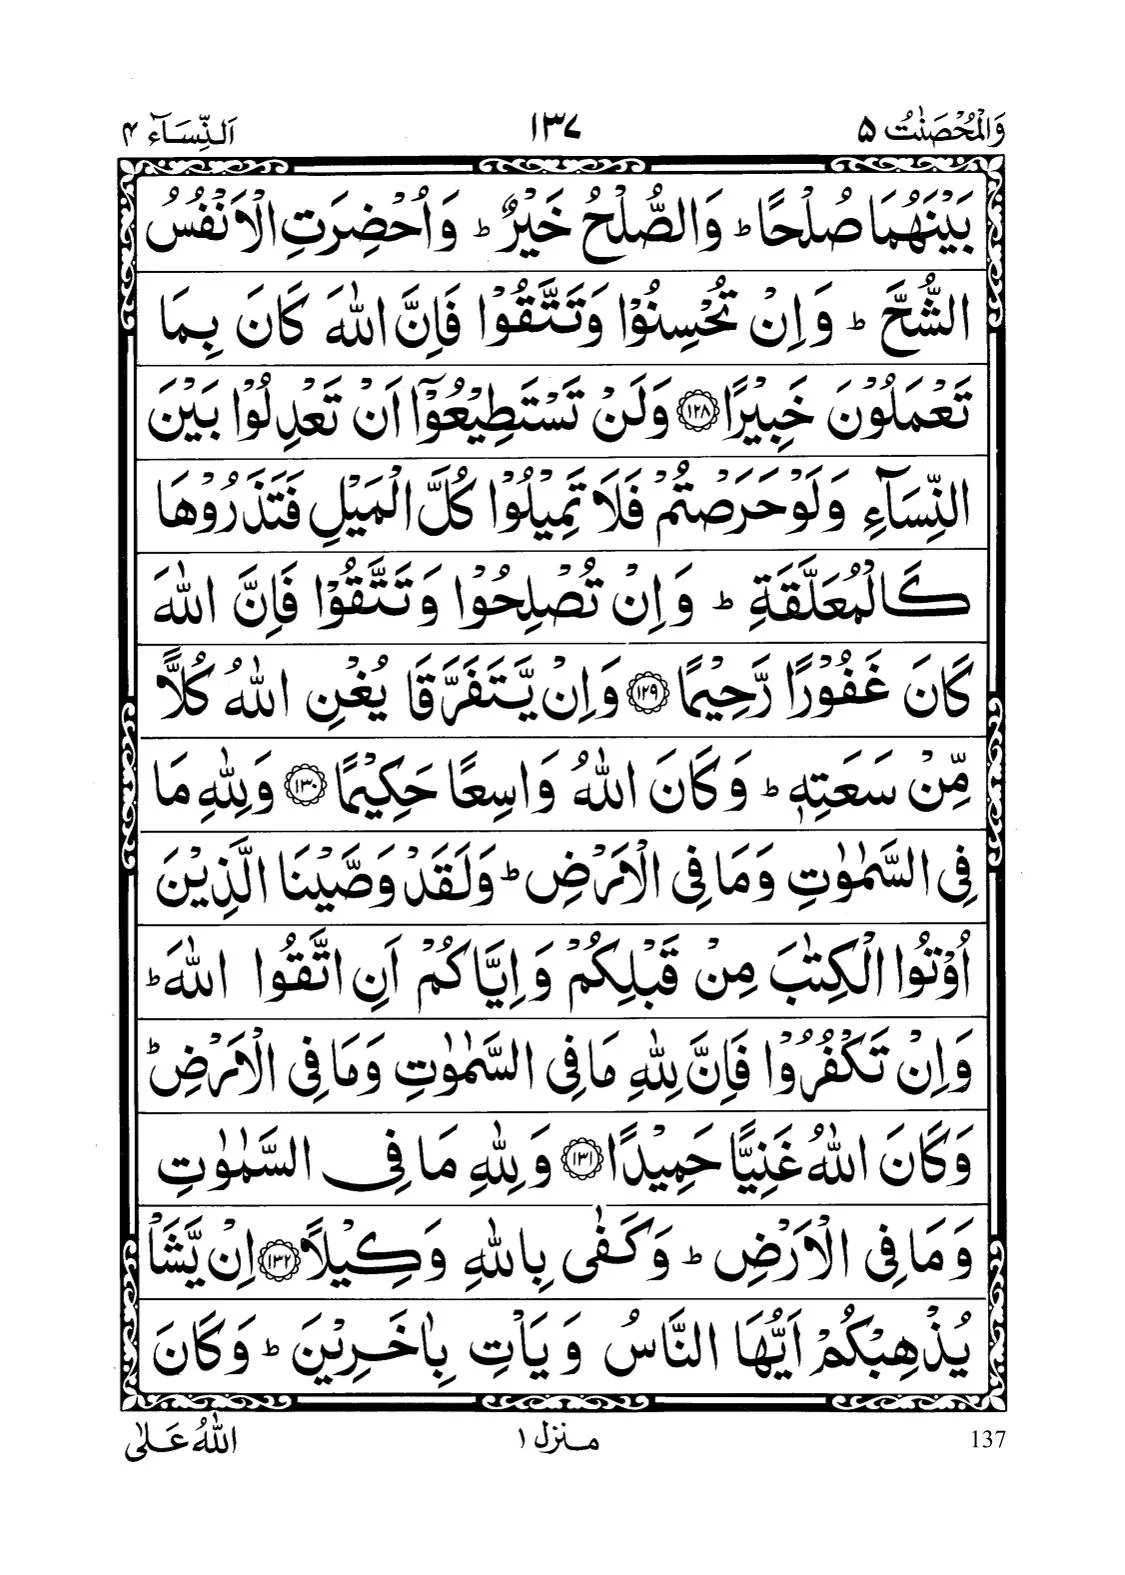 وَالْمُحْصَنٰتُ ۵
١٣٧
اَلنِّسَآء ۴
بَيْنَهُمَا صُلْحًا ؕ وَالصُّلْحُ خَيْرٌ ؕ وَاُحْضِرَتِ الْاَنْفُسُ
الشُّحَّ ؕ وَاِنْ تُحْسِنُوْا وَتَتَّقُوْا فَاِنَّ اللّٰهَ كَانَ بِمَا
تَعْمَلُوْنَ خَبِيْرًا ﴿۱۲۸﴾ وَلَنْ تَسْتَطِيْعُوْٓا اَنْ تَعْدِلُوْا بَيْنَ
النِّسَآءِ وَلَوْ حَرَصْتُمْ فَلَا تَمِيْلُوْا كُلَّ الْمَيْلِ فَتَذَرُوْهَا
كَالْمُعَلَّقَةِ ؕ وَاِنْ تُصْلِحُوْا وَتَتَّقُوْا فَاِنَّ اللّٰهَ
كَانَ غَفُوْرًا رَّحِيْمًا ﴿۱۲۹﴾ وَاِنْ يَّتَفَرَّقَا يُغْنِ اللّٰهُ كُلًّا
مِّنْ سَعَتِهٖ ؕ وَكَانَ اللّٰهُ وَاسِعًا حَكِيْمًا ﴿۱۳۰﴾ وَلِلّٰهِ مَا
فِى السَّمٰوٰتِ وَمَا فِى الْاَرْضِ ؕ وَلَقَدْ وَصَّيْنَا الَّذِيْنَ
اُوْتُوا الْكِتٰبَ مِنْ قَبْلِكُمْ وَاِيَّاكُمْ اَنِ اتَّقُوا اللّٰهَ ؕ
وَاِنْ تَكْفُرُوْا فَاِنَّ لِلّٰهِ مَا فِى السَّمٰوٰتِ وَمَا فِى الْاَرْضِ ؕ
وَكَانَ اللّٰهُ غَنِيًّا حَمِيْدًا ﴿۱۳۱﴾ وَلِلّٰهِ مَا فِى السَّمٰوٰتِ
وَمَا فِى الْاَرْضِ ؕ وَكَفٰى بِاللّٰهِ وَكِيْلًا ﴿۱۳۲﴾ اِنْ يَّشَاْ
يُذْهِبْكُمْ اَيُّهَا النَّاسُ وَيَاْتِ بِاٰخَرِيْنَ ؕ وَكَانَ
اللّٰهُ عَلٰى
منزل ۱
137